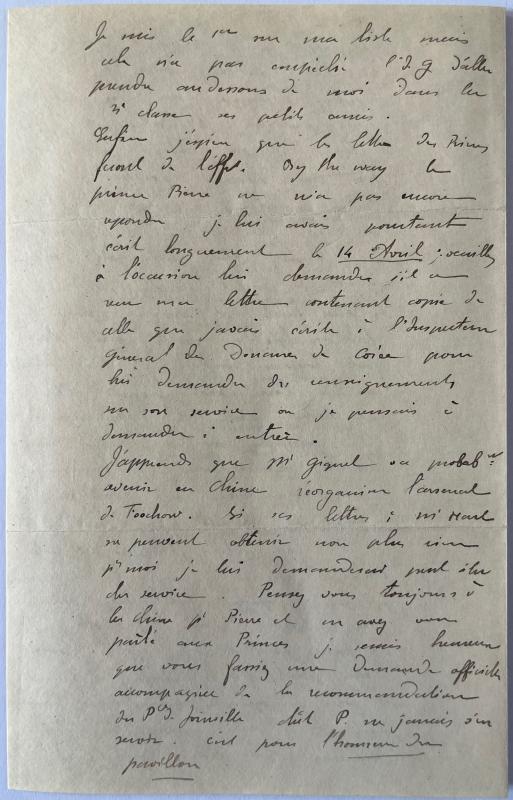 Je suis le 1er sur ma liste mais
cela n'a pas empêché l'I. G. d'aller
prendre au dessous de moi dans la
3e classe ses petits amis.
Enfin j'espère que les lettres des Princes
feront de l'effet. By the way le
prince Pierre ne m'a pas encore
répondu je lui avais pourtant
écrit longuement le 14 Avril; veuillez
à l'occasion lui demander s'il a
reçu ma lettre contenant copie de
celle que j'avais écrite à l'Inspecteur
général des Douanes de Corée pour
lui demander des renseignements
sur son service où je pensais à
demander à entrer.
J'apprends que Mr Giquel va probabt
revenir en Chine réorganiser l'arsenal
de Foochow. Si ses lettres à Mr Hart
ne peuvent obtenir non plus rien
pr moi je lui demanderai peut être
du service. Pensez vous toujours à
la Chine pr Pierre et en avez vous
parlé aux Princes je serais heureux
que vous fassiez une demande officielle
accompagnée de la recommandation
du Pce de Joinville dût P. ne jamais s'en
servir. C'est pour l'honneur du
pavillon